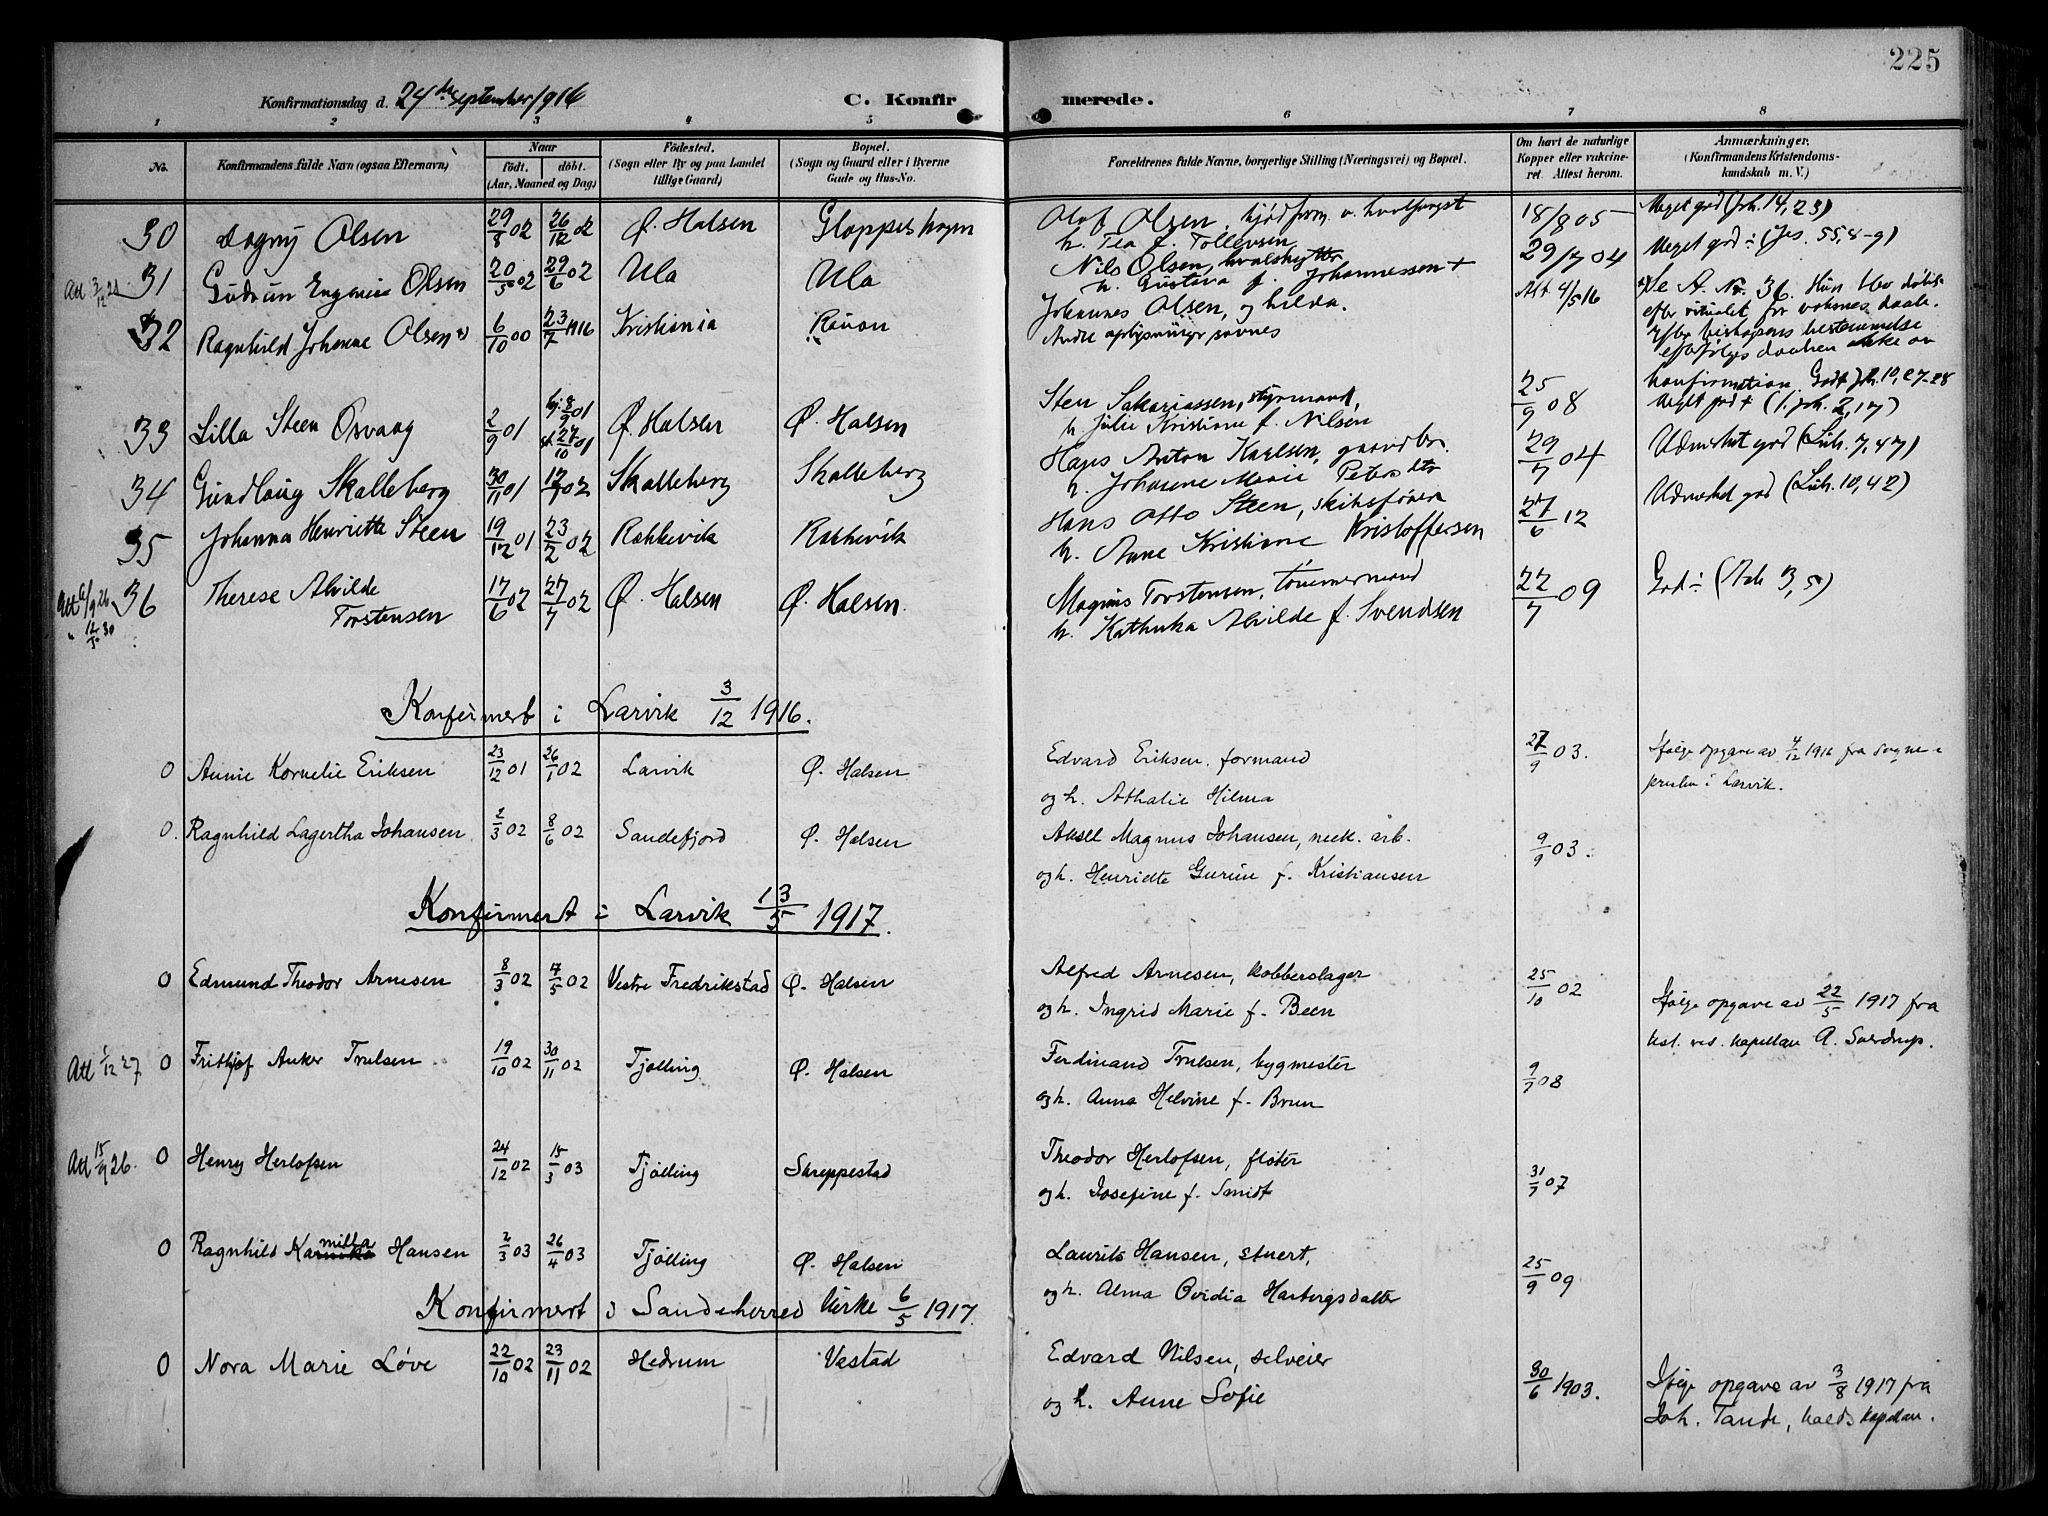 225
Konfirmationsdag d. 24de september 1916
C. Konfirmerede.
1 2 3 4 5 6 7 8
No.
Konfirmandens fulde Navn (ogsaa Efternavn)
Naar
født. døbt.
(Aar, Maaned og Dag)
Fødested.
(Sogn eller By og paa Landet
tillige Gaard)
Bopæl.
(Sogn og Gaard eller i Byerne
Gade og Hus-No.
Forældrenes fulde Navne, borgerlige Stilling (Næringsvei) og Bopæl.
Om havt de naturlige
Kopper eller vakcine-
ret. Attest herom.
Anmærkninger.
(Konfirmandens Kristendoms-
kundskab m. V.)
30 Dagny Olsen 29/8 02 26/12 02 Ø. Halsen Gloppeshagen Olaf Olsen, 18/8 05 Meget god (Joh. 14, 23)
h. Tea f. Tollevsen
31 Gudrun Eugenie Olsen 20/5 02 29/6 02 Ula Ula Nils Olsen, hvalskytter 29/7 04 Meget god ÷ (Jes. 55, 8-9)
h. Gustava f. Johannessen +
32 Ragnhild Johanne Olsen x) 6/10 00 23/7 1916 Kristiania Rauan Johannes Olsen, og Hilda. Att 4/5 16 x) Se A. Nr. 36. Hun blev døbt
Andre oplysninger savnes
efter ritualet for voksnes daab.
Efter biskopens bestemmelse
efterfølges daaben ikke av
konfirmation. Godt Joh. 10, 27-28
33 Lilla Steen Osvaag 2/9 01 hj. 8/9 01 st. 27/10 01 Ø. Halsen Ø. Halsen Sten Sakariassen, styrmand, 25/9 08 Meget god + (1. Joh. 2, 17)
h. Julie Kristiane f. Nilsen
34 Gundlaug Skalleberg 30/11 01 12/1 02 Skalleberg Skalleberg Hans Anton Karlsen, gaardbr. 29/7 04 Udmerket god (Luk. 7, 47)
h. Johanne Marie Petersdtr
35 Johanna Henriette Steen 19/12 01 23/2 02 Rakkevik Rakkevik Hans Otto Steen, skibsfører 27/6 12 Udmerket god (Luk. 10, 42)
h. Anne Kristiane Kristoffersen
Att 6/9 26 36 Therese Alvilde
Torstensen 17/6 02 27/7 02 Ø. Halsen Ø. Halsen. Magnus Torstensen, tømmermand 22/7 09 God ÷ (Aab 3, 5)
" 12/5 30
h. Kathinka Alvilde f. Svendsen
Konfirmert i Larvik 3/12 1916.
0 Annie Kornelie Eriksen 23/12 01 26/1 02 Larvik Ø. Halsen Edvard Eriksen. formand 27/9 03. Ifølge opgave av 4/12 1916 fra sogne-
og h. Athalie Hilma
presten i Larvik.
0. Ragnhild Lagertha Johansen 2/3 02 8/6 02 Sandefjord Ø. Halsen Aksel Magnus Johansen, mek. arb. 9/9 03.
og h. Henriette Gurine f. Kristiansen
Konfirmert i Larvik 13/5 1917.
0 Edmund Theodor Arnesen 8/3 02 4/5 02 Vestre Fredrikstad Ø. Halsen Alfred Arnesen, kobberslager 25/10 02
og h. Ingrid Marie f. Been
Ifølge opgave av 22/5 1917 fra
res. kapellan A. Sverdrup.
Att 1/12 27 0 Frithjof Anker Trulsen 19/10 02 30/11 02 Tjølling Ø. Halsen Ferdinand Trulsen, bygmester 9/7 08
og h. Anna Helvine f. Brun
Att 15/9 26. 0 Henry Herlofsen 24/12 02 15/3 03 Tjølling Skreppestad Theodor Herlofsen, fløter 31/7 07
og h. Josefine f. Smidt
0 Ragnhild Kamilla Hansen 2/3 03 26/4 03 Tjølling Ø. Halsen Laurits Hansen, stuert, 25/9 09
og h. Alma Ovidia Hartvigsdatter
Konfirmert i Sandeherred kirke 6/5 1917.
0 Nora Marie Løve 22/10 02 23/11 02 Hedrum Vestad Edvard Nilsen, selveier 30/6 1903. Ifølge opgave av 3/8 1917 fra
og h. Anne Sofie
Joh. Tande, kaldskapellan.